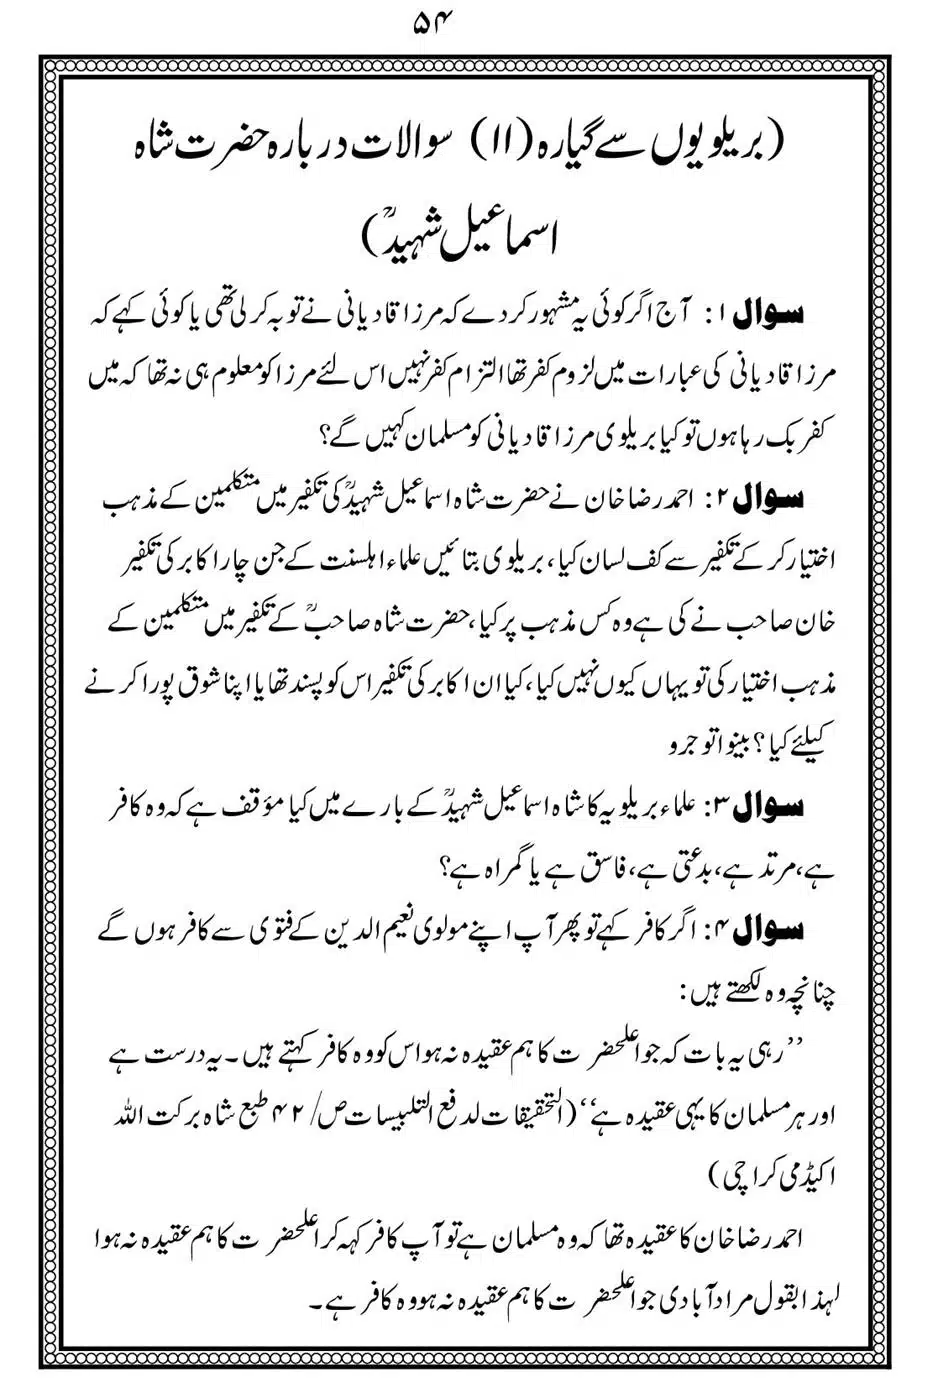 ۵۴
(بریلویوں سے گیارہ (۱۱) سوالات دربارہ حضرت شاہ
اسماعیل شہیدؒ)
سوال ۱: آج اگر کوئی یہ مشہور کردے کہ مرزا قادیانی نے توبہ کرلی تھی یا کوئی کہے کہ
مرزا قادیانی کی عبارات میں لزوم کفر تھا التزام کفر نہیں اس لئے مرزا کو معلوم ہی نہ تھا کہ میں
کفر بک رہا ہوں تو کیا بریلوی مرزا قادیانی کو مسلمان کہیں گے؟
سوال ۲: احمد رضا خان نے حضرت شاہ اسماعیل شہیدؒ کی تکفیر میں متکلمین کے مذہب
اختیار کر کے تکفیر سے کف لسان کیا، بریلوی بتائیں علماء اہلسنت کے جن چار اکابر کی تکفیر
خان صاحب نے کی ہے وہ کس مذہب پر کیا، حضرت شاہ صاحبؒ کے تکفیر میں متکلمین کے
مذہب اختیار کی تو یہاں کیوں نہیں کیا، کیا ان اکابر کی تکفیر اس کو پسند تھا یا اپنا شوق پورا کرنے
کیلئے کیا؟ بینوا توجرو
سوال ۳: علماء بریلویہ کا شاہ اسماعیل شہیدؒ کے بارے میں کیا مؤقف ہے کہ وہ کافر
ہے، مرتد ہے، بدعتی ہے، فاسق ہے یا گمراہ ہے؟
سوال ۴: اگر کافر کہے تو پھر آپ اپنے مولوی نعیم الدین کے فتوی سے کافر ہوں گے
چنانچہ وہ لکھتے ہیں:
’’رہی یہ بات کہ جو اعلحضرت کا ہم عقیدہ نہ ہو اس کو وہ کافر کہتے ہیں۔ یہ درست ہے
اور ہر مسلمان کا یہی عقیدہ ہے‘‘ (التحقیقات لدفع التلبیسات ص/ ۴۲ طبع شاہ برکت اللہ
اکیڈمی کراچی)
احمد رضا خان کا عقیدہ تھا کہ وہ مسلمان ہے تو آپ کافر کہہ کر اعلحضرت کا ہم عقیدہ نہ ہوا
لہذا بقول مراد آبادی جو اعلحضرت کا ہم عقیدہ نہ ہو وہ کافر ہے۔